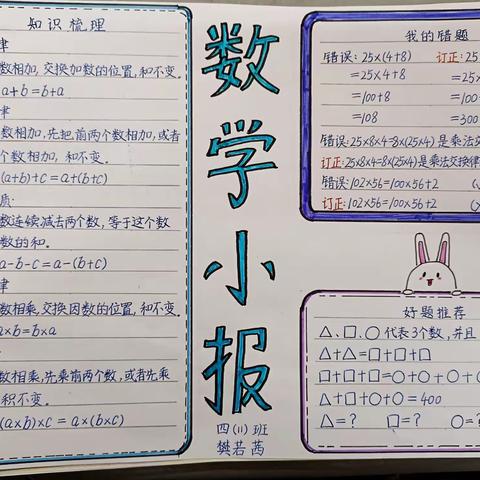 知识梳理
律
数相加,交换加数的位置,和不变。
a+b=b+a
律
数相加,先把前两个数相加,或者
个数相加,和不变。
(a+b)+c=a+(b+c)
质:
数连续减去两个数,等于这个数
数的和。
a-b-c=a-(b+c)
律
数相乘,交换因数的位置,积不变。
a×b=b×a
数相乘,先乘前两个数,或者先乘
积不变。
(a×b)×c=a×(b×c)
数学小报
四(11)班
樊若茜
我的错题
错误:25×(4+8) 订正:25×
=25×4+8 =25×
=100+8 =100
=108 =300
错误:25×8×4=8×(25×4)是乘法交
订正:25×8×4=8×(25×4)是乘法交换律
错误:102×56=100×56+2 (
订正:102×56=100×56+2 (
好题推荐
△、□、○代表3个数,并且
△+△=□+□+□
□+□+□=○+○+○+
△+□+○+○=400
△=? □=? ○=?